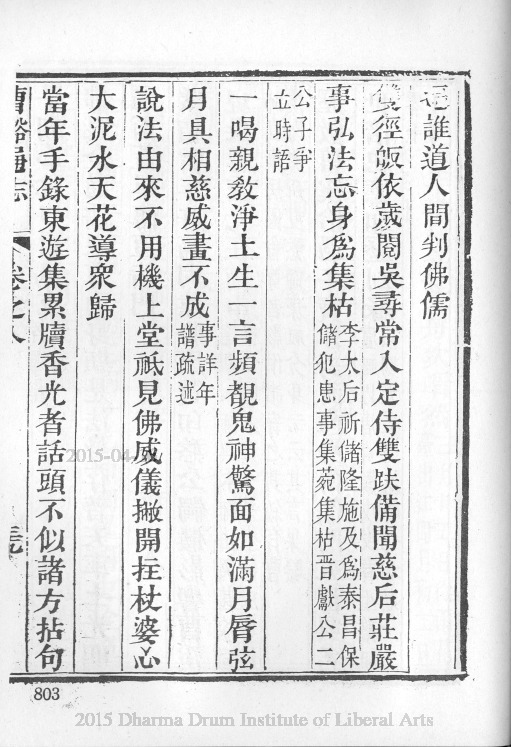 誰道人間判佛儒
雙徑皈依歲閱吳尋常入定侍雙趺備聞慈后莊嚴
事弘法忘身為集枯李太后祈儲隆施及為泰昌保
儲犯患事集菀集枯晋獻公二
公子爭
立時語
一喝親教淨土生一言頻覩鬼神驚面如滿月脣弦
月具相慈威畫不成事詳年
譜疏述
說法由來不用機上堂祇見佛威儀撇開拄杖婆心
大泥水天花導眾歸
當年手錄東遊集累牘香光者話頭不似諸方拈句
志
卷之八
803
2015-04-
2015 Dharma Drum Institute of Liberal Arts